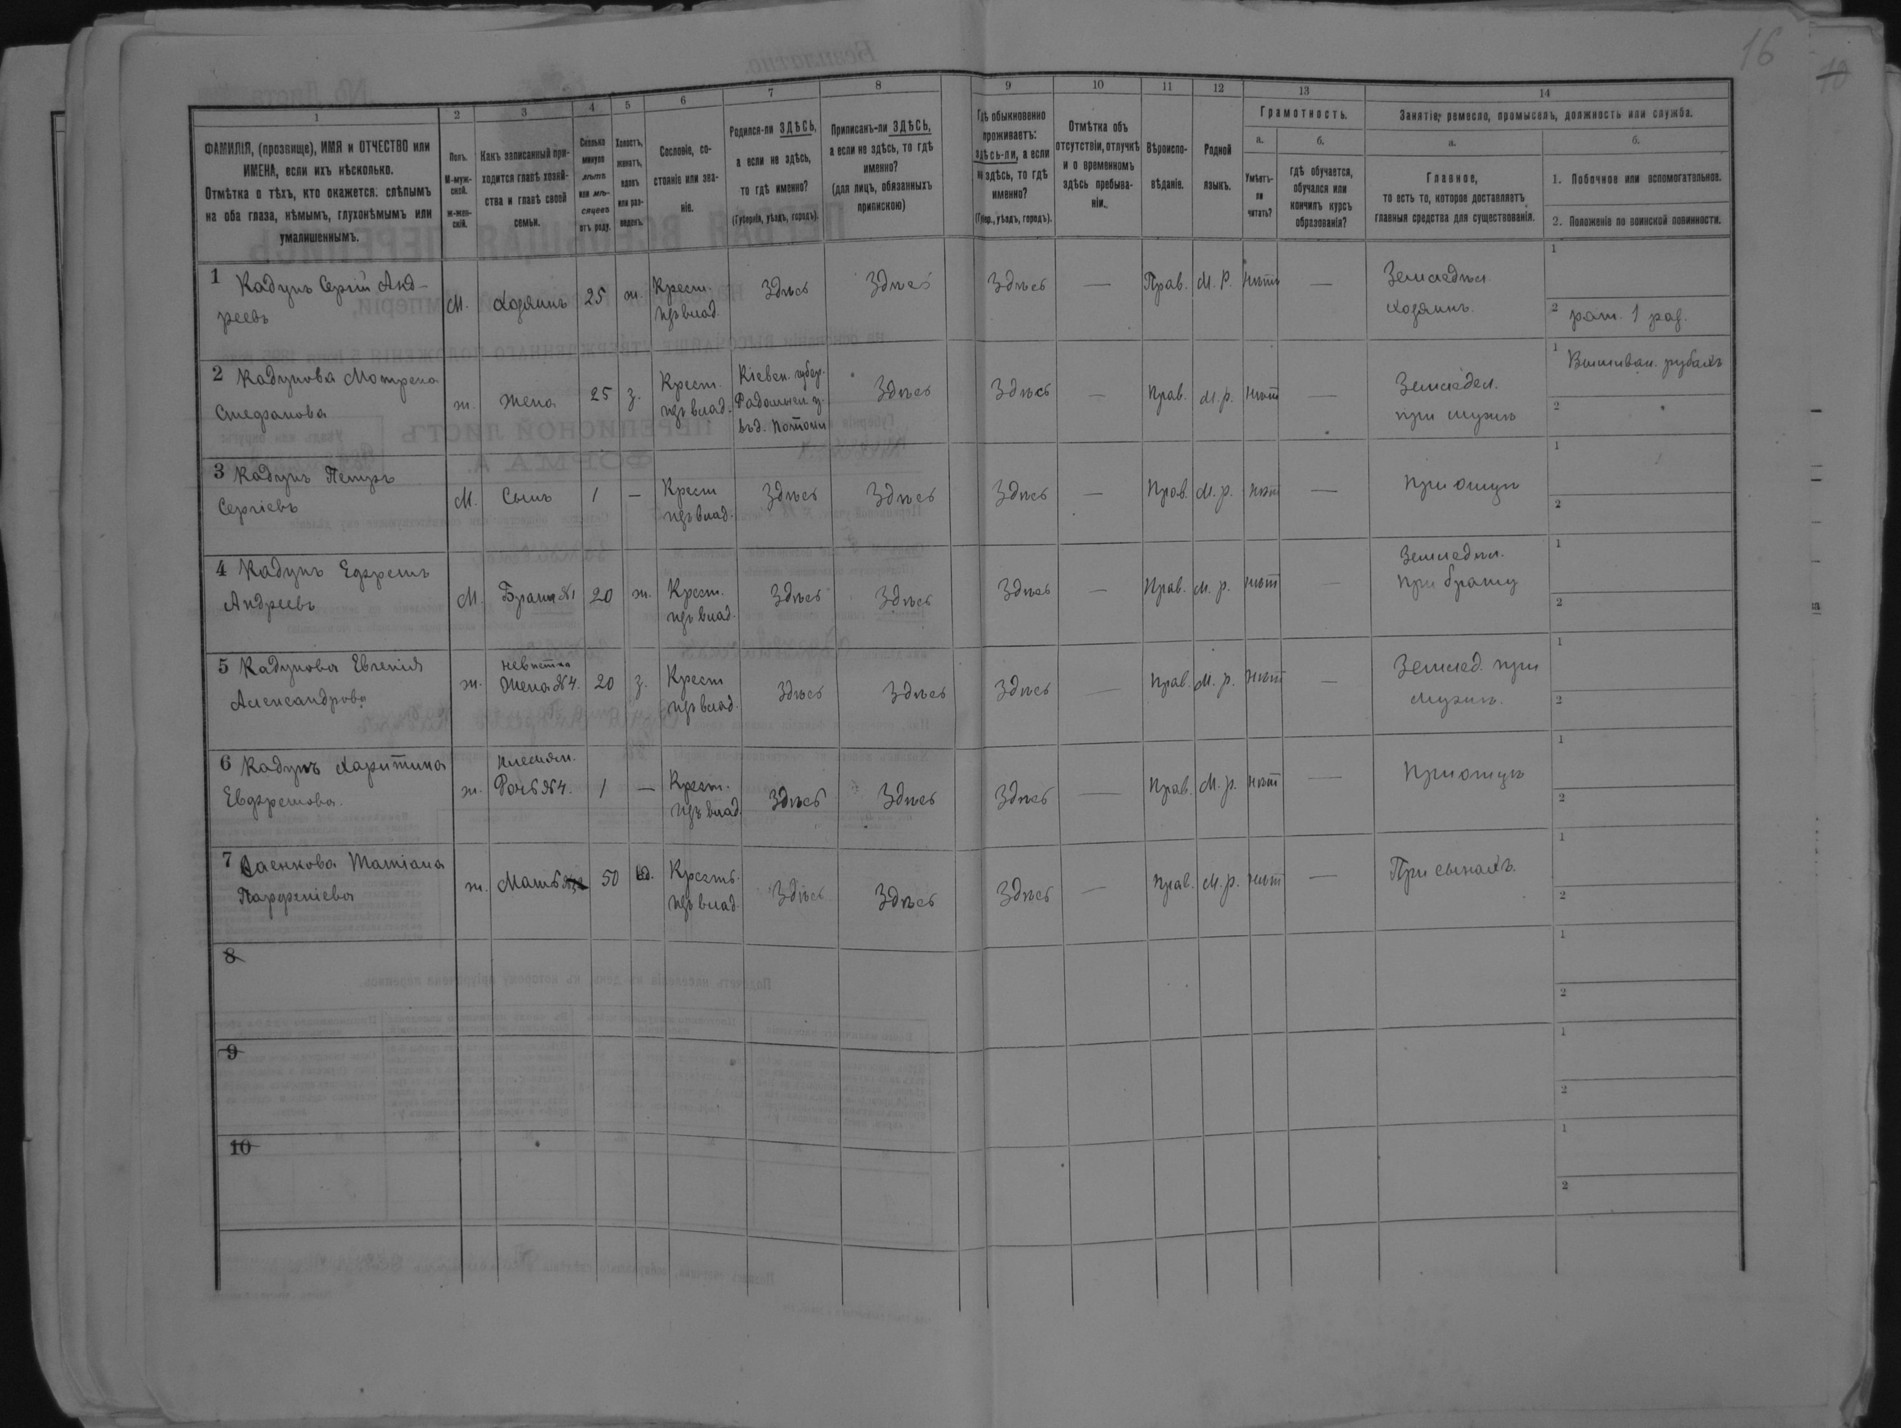 16
10
1 2 3 4 5 6 7 8 9 10 11 12 13 14
ФАМИЛІЯ, (прозвище), ИМЯ и ОТЧЕСТВО или
ИМЕНА, если ихъ нѣсколько.
Отмѣтка о тѣхъ, кто окажется: слѣпымъ
на оба глаза, нѣмымъ, глухонѣмымъ или
умалишеннымъ.
Полъ.
М-муж-
ской.
ж-жен-
скій.
Какъ записанный при-
ходится главѣ хозяй-
ства и главѣ своей
семьи.
Сколько
минуло
лѣтъ
или мѣ-
сяцевъ
отъ роду.
Холостъ,
женатъ,
вдовъ
или раз-
веденъ.
Сословіе, со-
стояніе или зва-
ніе.
Родился-ли ЗДѢСЬ,
а если не здѣсь,
то гдѣ именно?
(Губернія, уѣздъ, городъ).
Приписанъ-ли ЗДѢСЬ,
а если не здѣсь, то гдѣ
именно?
(для лицъ, обязанныхъ
припискою)
Гдѣ обыкновенно
проживаетъ:
здѣсь-ли, а если
не здѣсь, то гдѣ
именно?
(Губер., уѣздъ, городъ).
Отмѣтка объ
отсутствіи, отлучкѣ
и о временномъ
здѣсь пребыва-
ніи.
Вѣроиспо-
вѣданіе.
Родной
языкъ.
Грамотность.
а.
Умѣетъ-
ли
читать?
б.
гдѣ обучается,
обучался или
кончилъ курсъ
образованія?
Занятіе, ремесло, промыселъ, должность или служба.
а.
Главное,
то есть то, которое доставляетъ
главныя средства для существованія.
б.
1. Побочное или вспомогательное.
2. Положеніе по воинской повинности.
1 Кадунъ Сергій Анд-
реевъ
М. Хозяинъ 25 ж. Крест. Здѣсь Здѣсь Здѣсь — Прав. М. Р. Нѣтъ — Земледѣл. 1
изъ влад. хозяинъ. 2 рат. 1 раз.
2 Кадунова Мотрена
Стефанова
ж. жена 25 з. Крест.
изъ влад.
Кіевск. губер.
Радомысл. у.
Здѣсь Здѣсь — Прав. М. р. Нѣт — Земледел.
при мужѣ
1 Вышиван. рубахъ
2
3 Кадунъ Петръ
Сергіевъ
М. Сынъ 1 — Крест
изъ влад.
Здѣсь Здѣсь Здѣсь — Прав. М. р. нѣт — При отцѣ
1
2
4 Кадунъ Ефремъ
Андреевъ
М. Братъ №1 20 ж. Крест.
изъ влад.
Здѣсь Здѣсь Здѣсь — Прав. М. р. нѣт — Земледѣл.
При брату
1
2
5 Кадунова Евгенія
Александрова
ж. невѣстка
Жена №4. 20 з. Крест
изъ влад.
Здѣсь Здѣсь Здѣсь — Прав. М. р. нѣт — Землед. при
мужѣ.
1
2
6 Кадунъ Харитина
Евфремова.
ж. племян.
Дочь №4. 1 — Крест.
изъ влад
Здѣсь Здѣсь Здѣсь — Прав. М. р. нѣт — При отцѣ
1
2
7 Саенкова Татіана
Парфеніева
ж. Мать 50 вд. Крестъ.
изъ влад
Здѣсь Здѣсь Здѣсь — Прав. М. р. нѣт — При сынахъ.
1
2
8
1
2
9
1
2
10
1
2